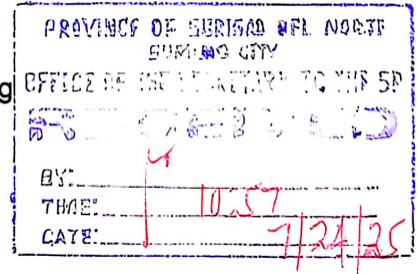 g
PROVINCE OF SURIGAO DEL NORTE
SURIGAO CITY
OFFICE OF THE SECRETARY TO THE SP
BY:
TIME: 10:57
DATE: 7/24/25